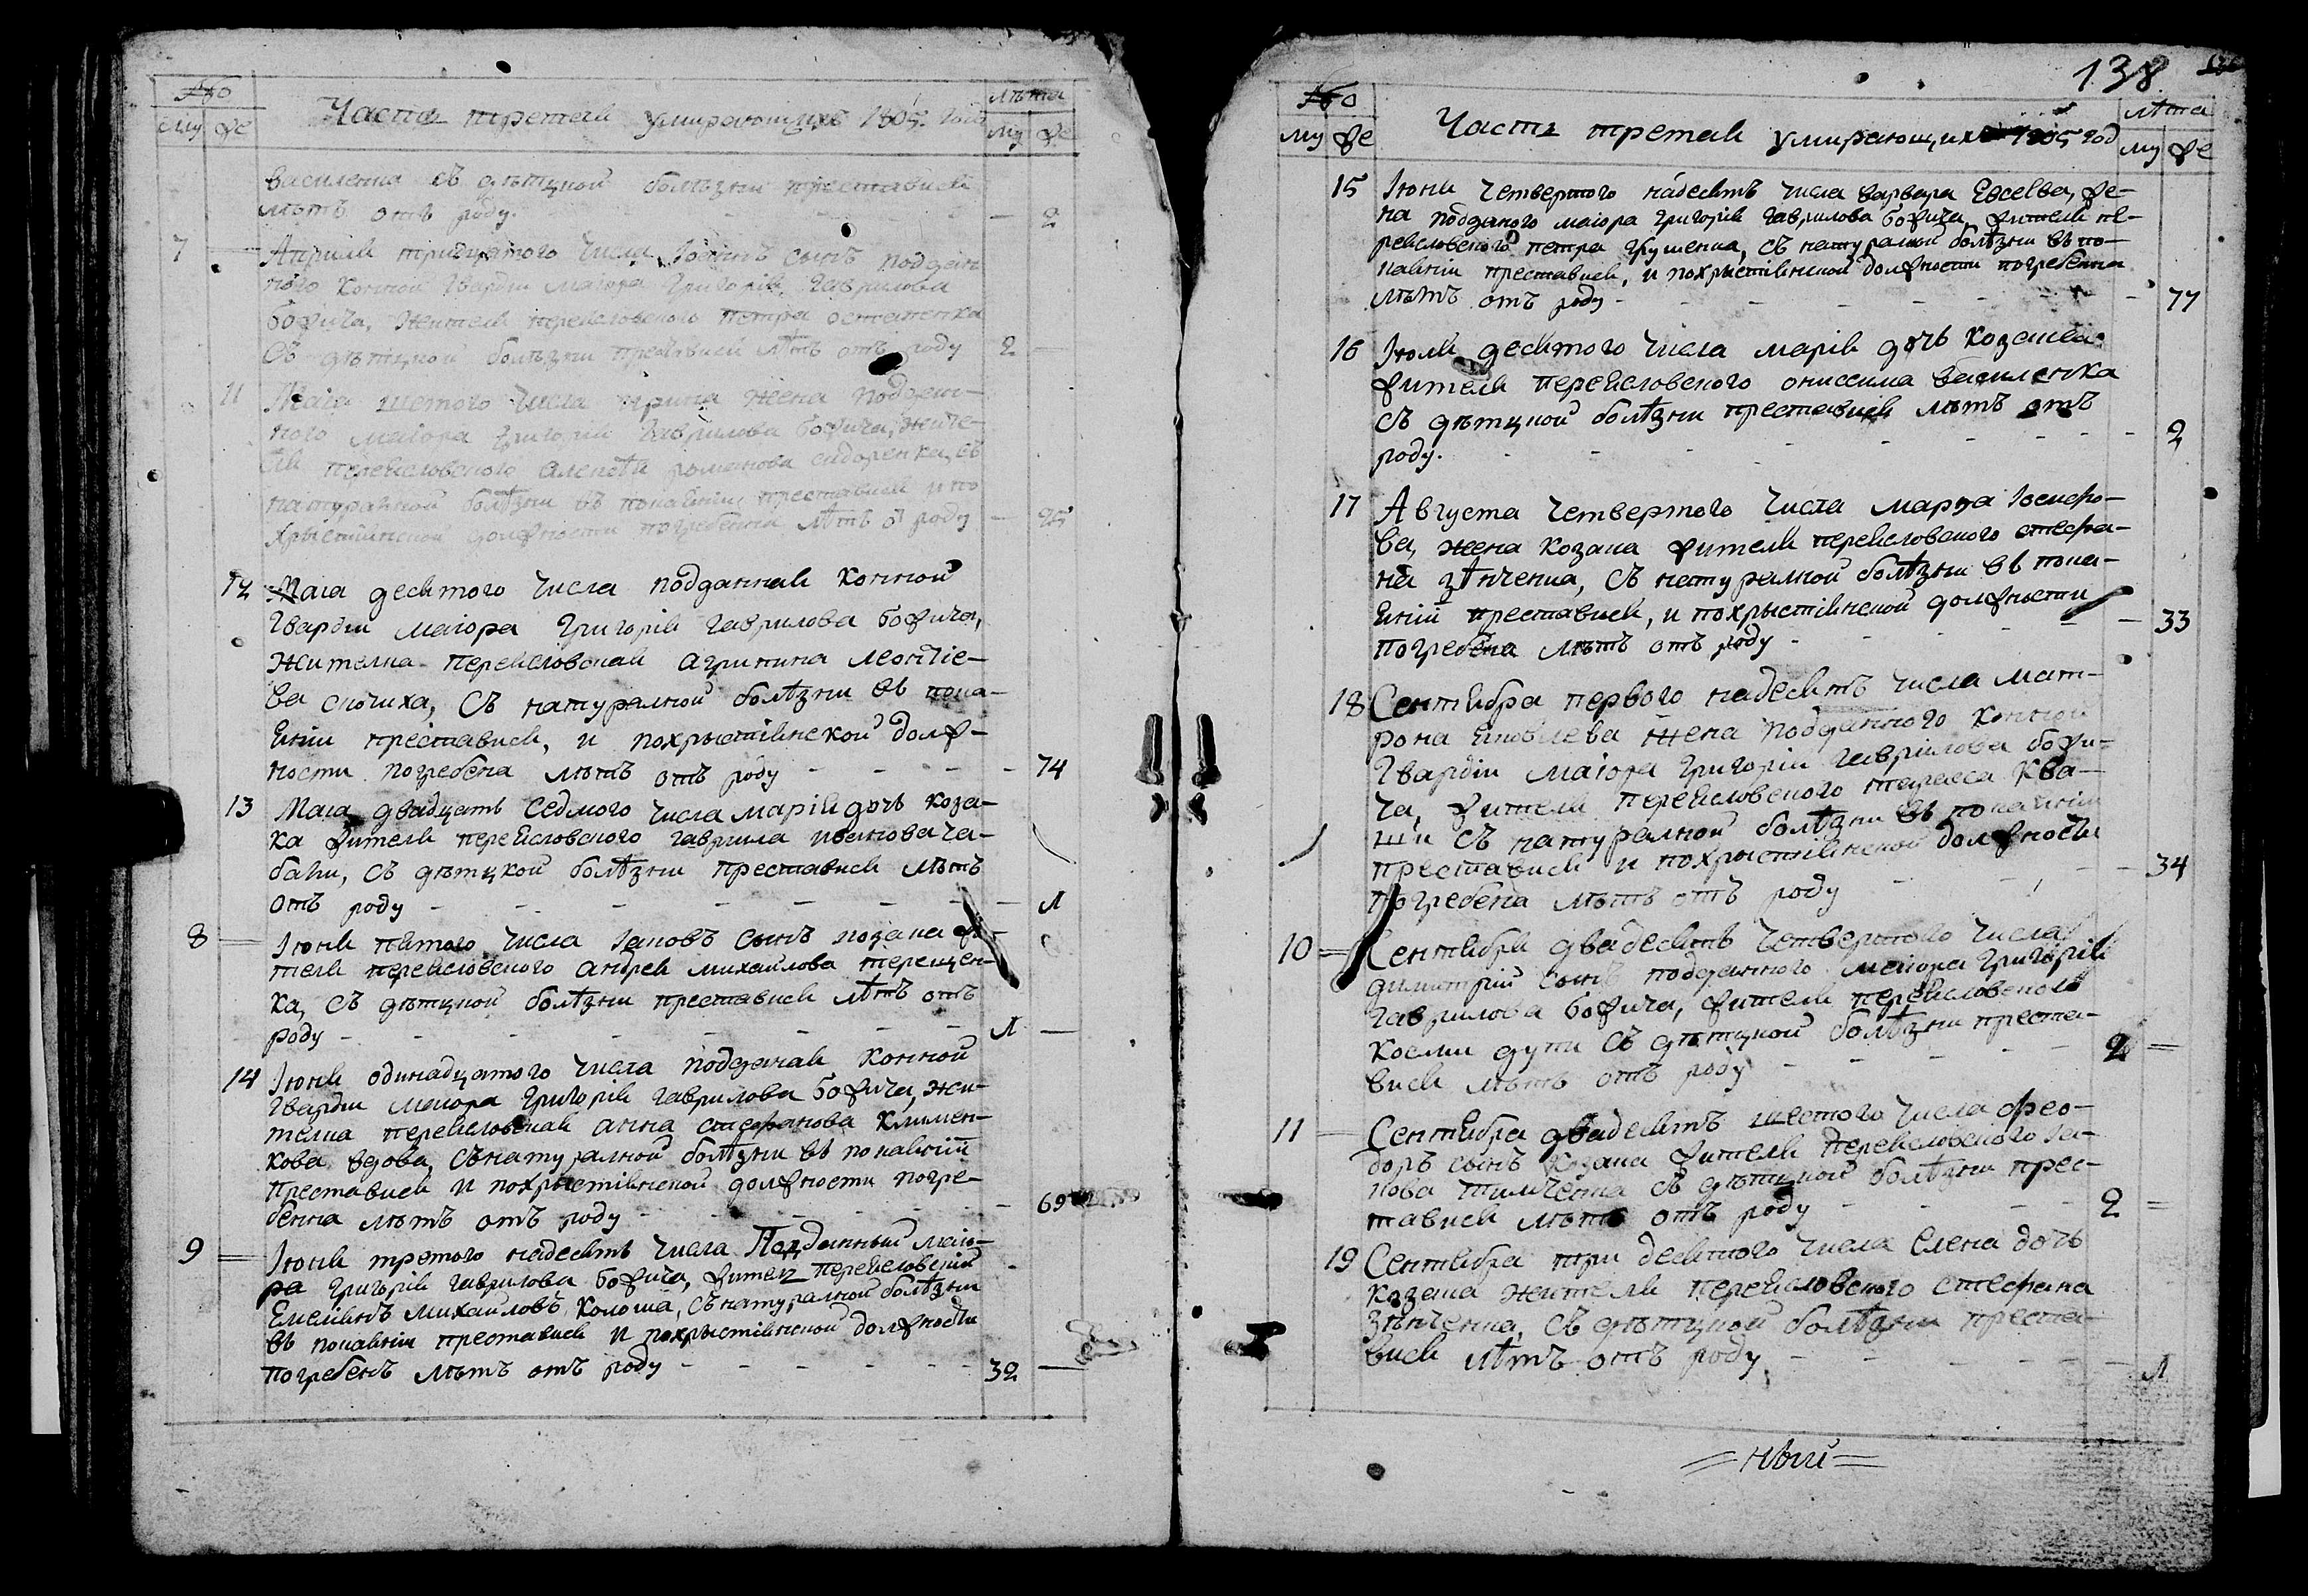 Часть третая умирающихъ 1805. года
Му Же
Лѣта
Му Же
василенка съ дѣтцкой болѣзни преставися
лѣтъ отъ роду. 2
7 Априля тридцятого числа сынъ подден
ного конной гвардіи маіора Григорія Гаврилова
божича, жителя переясловского петра остапенка
съ дѣтцкой болѣзни преставися лѣтъ отъ роду 2
11 Маіа шестого числа ирина жена поддан-
ного маіора Григорія Гаврилова божича, жите-
ля переясловского алексѣя романова сидоренка, съ
натуралной болѣзни въ покаяніи преставися и по
хрыстіянской должности погребенна лѣтъ ѿ роду 25
12 Маіа десятого числа подданная конной
Гвардіи маіора Григорія Гаврилова божича,
жителка переясловская агрипина леонтіе-
ва сючиха, съ натуралной болѣзни въ пока-
яніи преставися, и похрыстіянской долж-
ности погребена лѣтъ отъ роду 74
13 Маіа двадцать седмого числа марія дочь коза-
ка жителя переясловского гаврила иванова ча-
бани, съ дѣтцкой болѣзни преставися лѣтъ
отъ роду Л
8 Іюня пятого числа Іаковъ сынъ козака жи-
теля переясловского андрея михайлова терещен-
ка, съ дѣтцкой болѣзни преставися лѣтъ отъ
роду Л
14 Іюня одинадцятого числа подданая конной
гвардіи маіора Григорія Гаврилова божича, жи-
телка переясловская анна стефанова климен-
кова вдова, сънатуралной болѣзни въ покаяніи
преставися и похрыстіянской должности погре-
бенна лѣтъ отъ роду 69
9 Іюня третого надесять числа Подданный маіо-
ра Григорія Гаврилова божича, житель переясловскій
Емеліянъ Михайловъ Колоша, сънатуралной болѣзни
въ покаяніи преставися и похрыстіянской должности
погребенъ лѣтъ отъ роду 32
138
Му Же
Часть третая умирающихъ 1805 год
лѣта
Му Же
15 Іюня четвертого надесять числа варвара Евсеева, же-
на подданого маіора Григорія Гаврилова божича жителя пе-
реясловского петра Грушенка, съ натуралной болѣзни въ по-
каяніи преставися, и похрыстіянской должности погребенна
лѣтъ отъ роду 77
16 Іюля десятого числа марія дочь козачка
жителя переясловского онисима василенка
съ дѣтцкой болѣзни преставися лѣтъ отъ
роду. 2
17 Августа четвертого числа марѳа Іосифо-
ва, жена козака жителя переясловского стефа-
на зѣнченка, съ натуралной болѣзни въ пока-
яніи преставися, и похрыстіянской должности
погребена лѣтъ отъ роду 33
18 Сентября первого надесять числа мат-
рона яковлева жена подданного конной
Гвардіи маіора Григорія Гаврилова божи-
ча, жителя переясловского тараса ква-
ши съ натуралной болѣзни въ покаяніи
преставися и похрыстіянской должности
погребена лѣтъ отъ роду 34
10 Сентября двадесять четвертого числа
димитрій сынъ подданного маіора Григорія
Гаврилова божича, жителя переясловского
косми дути съ дѣтцкой болѣзни преста-
вися лѣтъ отъ роду 2
11 Сентября двадесять шестого числа фео-
доръ сынъ козака жителя переясловского Іа-
кова тимченка съ дѣтцкой болѣзни прес-
тавися лѣтъ отъ роду 2
19 Сентября три десятого числа Елена дочь
козака жителя переясловского стефана
зѣнченка, съ дѣтцкой болѣзни преста-
вися лѣтъ отъ роду Л